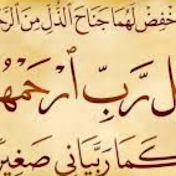 خْفِضْ لَهُمَا جَنَاحَ ٱلذُّلِّ مِنَ ٱلرَّ
ل رَّبِّ ٱرْحَمْهُ
كَمَا رَبَّيَانِي صَغِير